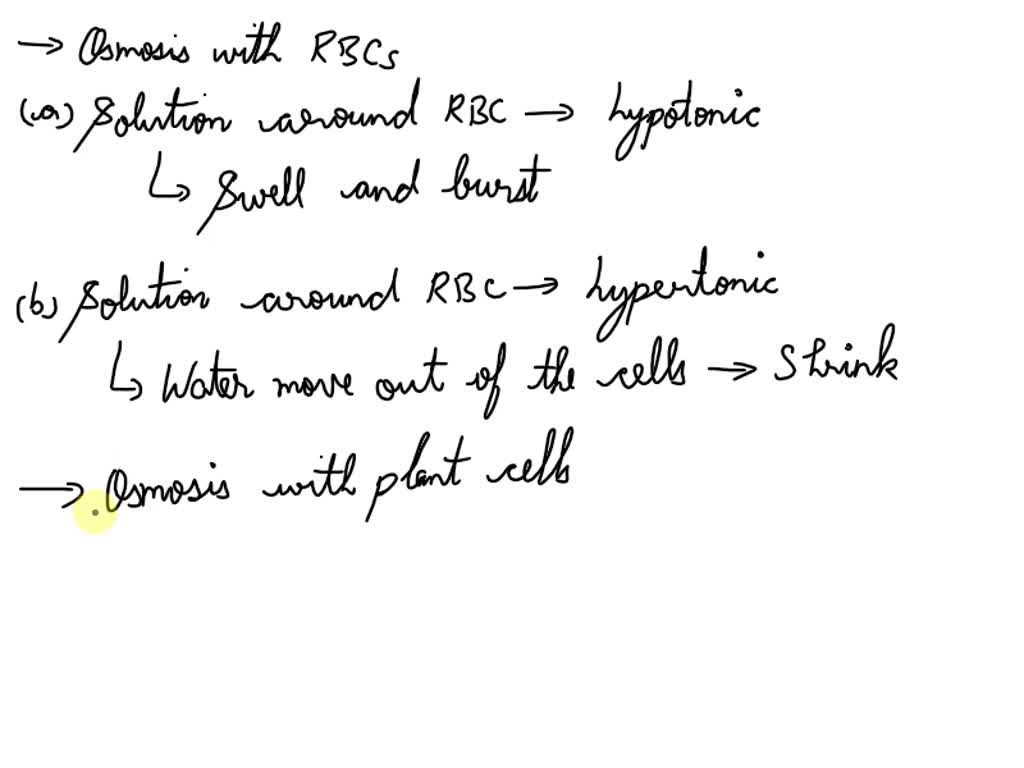 → Osmosis with RBCs
(a) Solution around RBC → hypotonic
↳ Swell and burst
(b) Solution around RBC → hypertonic
↳ Water move out of the cells → Shrink
→ Osmosis with plant cells